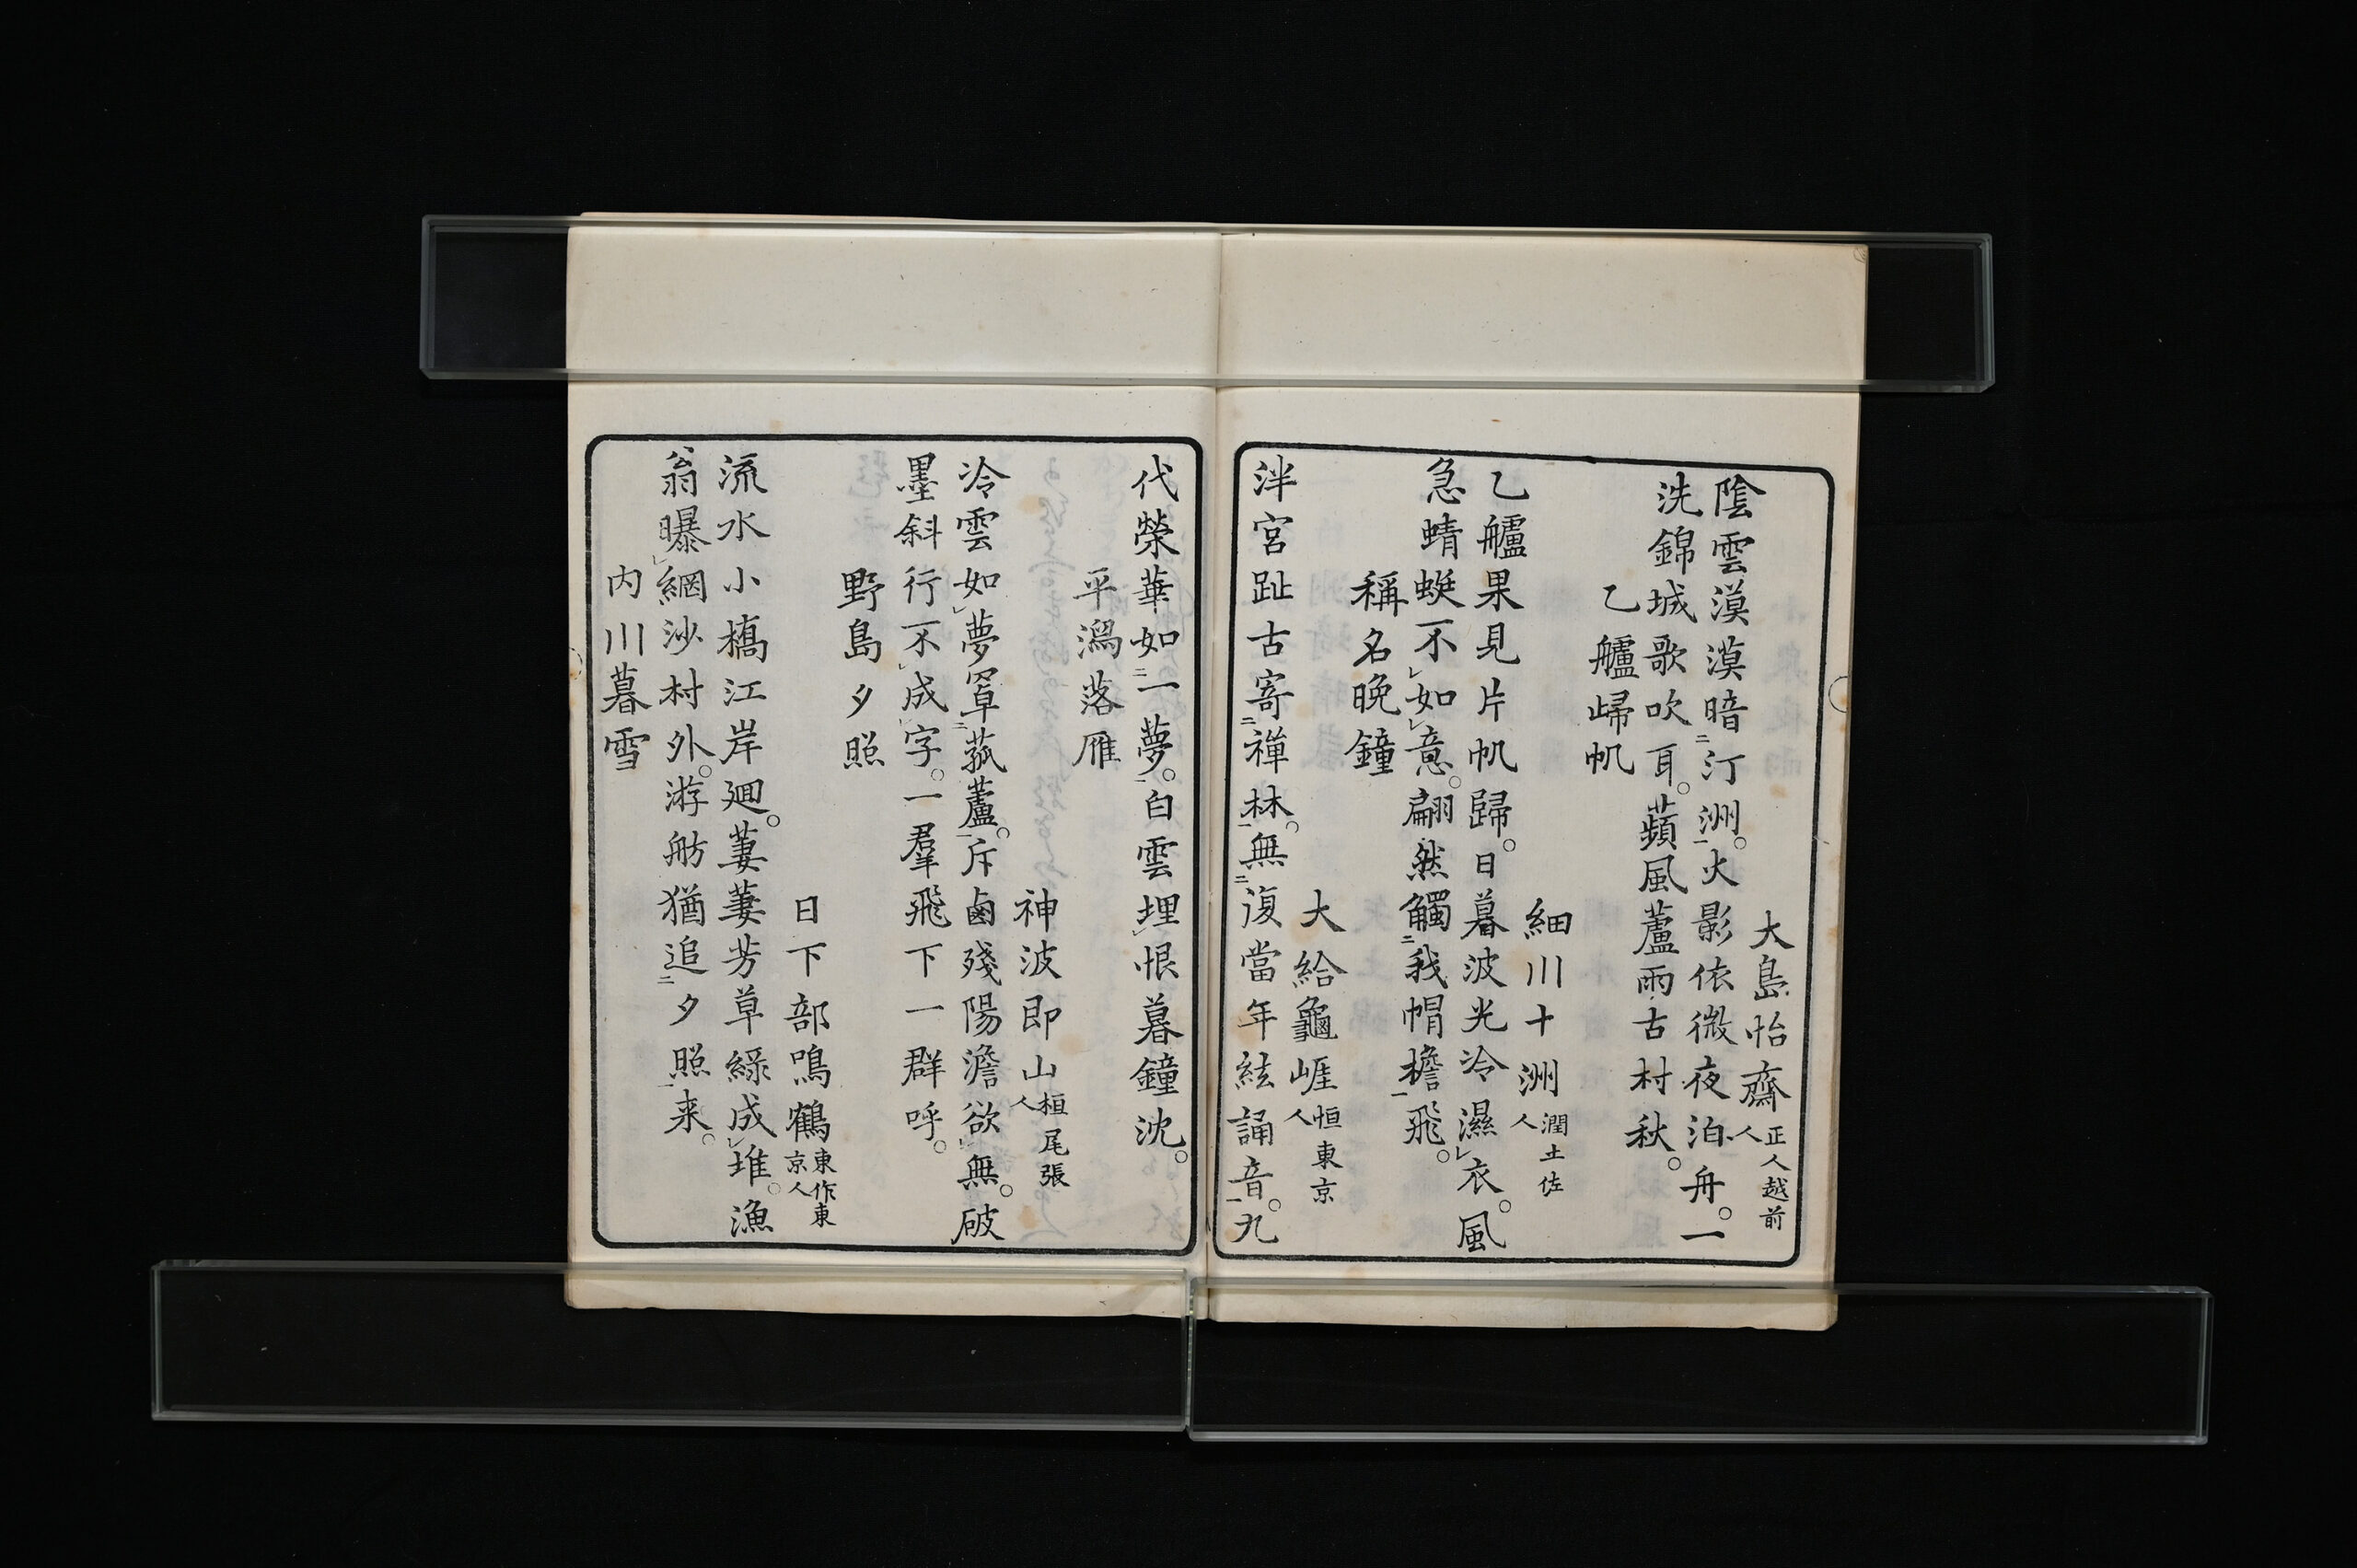 大島怡齋 正人越前人
陰雲漠漠暗二汀洲一。火影依微夜泊舟。一
洗錦城歌吹耳。蘋風蘆雨古村秋。
乙艫歸帆
細川十洲 潤土佐人
乙艫果見片帆歸。日暮波光冷濕レ衣。風
急蜻蜓不レ如レ意。翩然觸二我帽檐一飛。
稱名晚鐘
大給龜崕 恒東京人
泮宮趾古寄二禪林一。無二復當年絃誦音一。九
代榮華如二一夢一。白雲埋レ恨暮鐘沈。
平潟落雁
神波即山 桓尾張人
冷雲如レ夢罩二菰蘆一。斥鹵殘陽澹欲レ無。破
墨斜行不レ成レ字。一羣飛下一群呼。
野島夕照
日下部鳴鶴 東作東京人
流水小橋江岸廻。萋萋芳草綠成レ堆。漁
翁曝レ網沙村外。游舫猶追二夕照一来。
内川暮雪